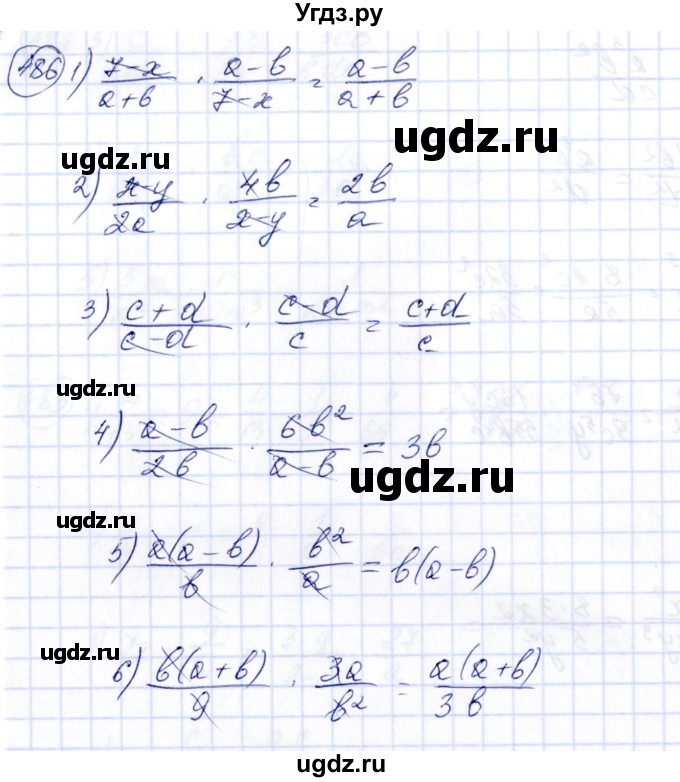 Угдз.ру
486 1) (7-x)/(a+b) · (a-b)/(7-x) = (a-b)/(a+b)
ugdz.ru
ugdz.ru
2) (x-y)/(2a) · (4b)/(x-y) = (2b)/a
ugdz.ru
3) (c+d)/(c-d) · (c-d)/c = (c+d)/c
ugdz.ru
4) (a-b)/(2b) · (6b²)/(a-b) = 3b
ugdz.ru
ugdz.ru
5) (a(a-b))/b · b²/a = b(a-b)
ugdz.ru
6) (b(a+b))/9 · (3a)/b² = (a(a+b))/(3b)
ugdz.ru